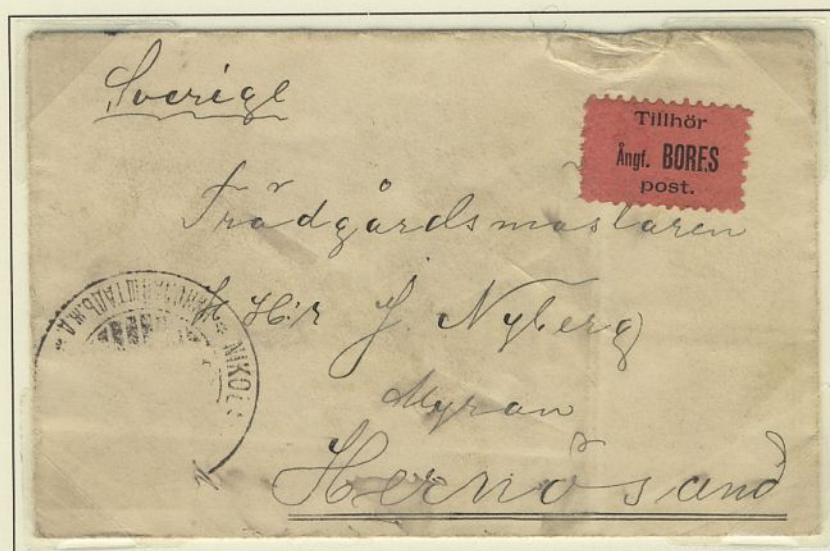 Sverige
Tillhör
Ångf. BORES
post.
Trädgårdsmästaren
H Hr J. Nyberg
Myran
Hernösand
NIKOL